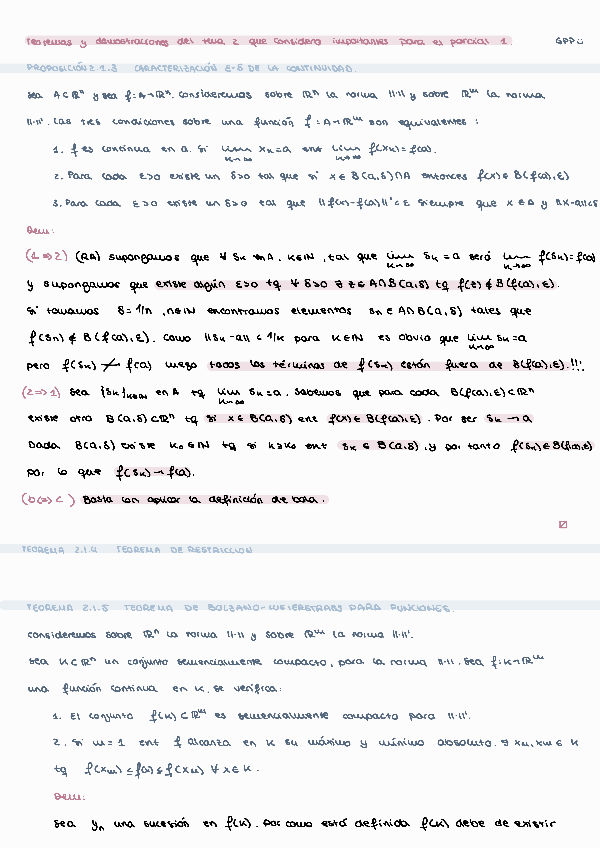 Teoremas y demostraciones del tema 2 que considero importantes para el parcial 1. GPPU
PROPOSICIÓN 2.1.3 CARACTERIZACIÓN ε-δ DE LA CONTINUIDAD.
Sea A⊂ℝⁿ y sea f:A→ℝᵐ. Consideremos sobre ℝⁿ la norma ||·|| y sobre ℝᵐ la norma
||·||'. Las tres condiciones sobre una función f:A→ℝᵐ son equivalentes:
1. f es continua en a. Si lim xₖ=a ent lim f(xₖ)=f(a).
k→∞ k→∞
2. Para cada ε>0 existe un δ>0 tal que si x∈B(a,δ)∩A entonces f(x)∈B(f(a),ε)
3. Para cada ε>0 existe un δ>0 tal que ||f(x)-f(a)||'<ε siempre que x∈A y ||x-a||<δ
Dem:
(1⇒2) (RA) supongamos que ∀ Sₖ en A, k∈ℕ, tal que lim Sₖ=a será lim f(Sₖ)=f(a)
k→∞ k→∞
y supongamos que existe algún ε>0 tq ∀ δ>0 ∃ z∈A∩B(a,δ) tq f(z)∉B(f(a),ε).
Si tomamos δ=1/n, n∈ℕ encontramos elementos Sₙ∈A∩B(a,δ) tales que
f(Sₙ)∉B(f(a),ε). Como ||Sₖ-a||<1/k para k∈ℕ es obvio que lim Sₖ=a
k→∞
pero f(Sₖ)↛f(a) luego todos los términos de f(Sₖ) están fuera de B(f(a),ε).!!!
(2⇒1) Sea {Sₖ}ₖ∈ℕ en A tq lim Sₖ=a. Sabemos que para cada B(f(a),ε)⊂ℝⁿ
k→∞
existe otro B(a,δ)⊂ℝⁿ tq si x∈B(a,δ) ent f(x)∈B(f(a),ε). Por ser Sₖ→a
Dada B(a,δ) existe k₀∈ℕ tq si k≥k₀ ent Sₖ∈B(a,δ), y por tanto f(Sₖ)∈B(f(a),ε)
por lo que f(Sₖ)→f(a).
(b⇔c) Basta con aplicar la definición de bola.
TEOREMA 2.1.4 TEOREMA DE RESTRICCIÓN
TEOREMA 2.1.5 TEOREMA DE BOLZANO-WEIERSTRASS PARA FUNCIONES.
Consideremos sobre ℝⁿ la norma ||·|| y sobre ℝᵐ la norma ||·||'.
Sea K⊂ℝⁿ un conjunto secuencialmente compacto, para la norma ||·||. Sea f:K→ℝᵐ
una función continua en K. Se verifica:
1. El conjunto f(K)⊂ℝᵐ es secuencialmente compacto para ||·||'.
2. Si m=1 ent f alcanza en K su máximo y mínimo absoluto. ∃ xₘ,x_M∈K
tq f(xₘ)≤f(x)≤f(x_M) ∀ x∈K.
Dem:
Sea yₙ una sucesión en f(K). Por como está definida f(K) debe de existir